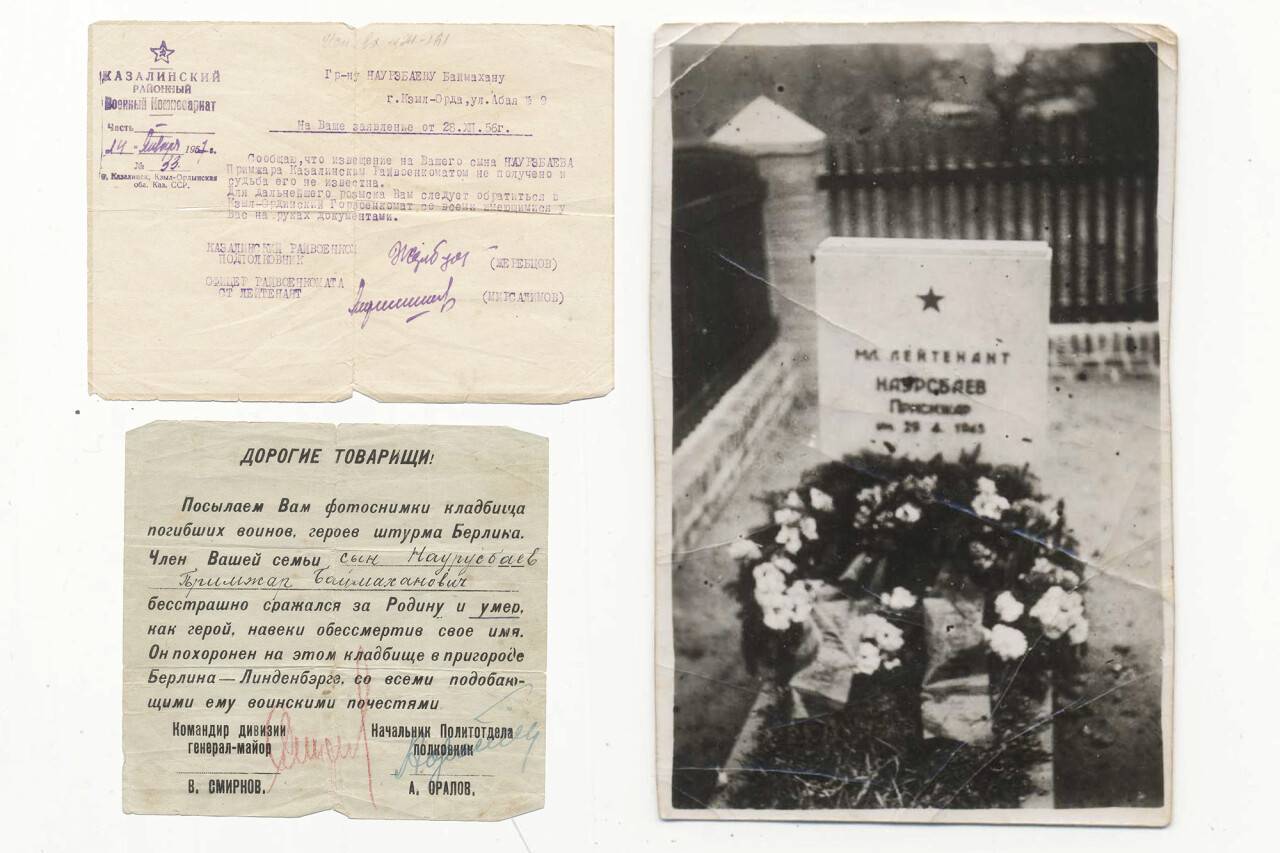 КАЗАЛИНСКИЙ
РАЙОННЫЙ
Военный Комиссариат
Часть
"14" Январь 1957 г.
№ 33
г. Казалинск, Кзыл-Орлынская
обл. Каз. ССР.
Гр-ну НАУРЗБАЕВУ Баймахану
г.Кзыл-Орда,ул.Абая № 9
На Ваше заявление от 28.XII.56г.
Сообщаю,что извещение на Вашего сына НАУРЗБАЕВА
Примжара Казалинским Райвоенкоматом не получено и
судьба его не известна.
Для дальнейшего розыска Вам следует обратиться в
Кзыл-Ординский Горвоенкомат со всеми имеющимися у
Вас на руках документами.
КАЗАЛИНСКИЙ РАЙВОЕНКОМ
ПОДПОЛКОВНИК
(ЖЕРЕБЦОВ)
ОФИЦЕР РАЙВОЕНКОМАТА
СТ ЛЕЙТЕНАНТ
(МИРСАЛИМОВ)
ДОРОГИЕ ТОВАРИЩИ!
Посылаем Вам фотоснимки кладбища
погибших воинов, героев штурма Берлика.
Член Вашей семьи сын Наурусбаев
Примжар Баймаханович
бесстрашно сражался за Родину и умер,
как герой, навеки обессмертив свое имя.
Он похоронен на этом кладбище в пригороде
Берлина—Линденбэргэ, со всеми подобаю-
щими ему воинскими почестями
Командир дивизии
генерал-майор
В. СМИРНОВ.
Начальник Политотдела
полковник
А. ОРАЛОВ.
МЛ. ЛЕЙТЕНАНТ
НАУРСБАЕВ
Примжар
ум. 29 4. 1945